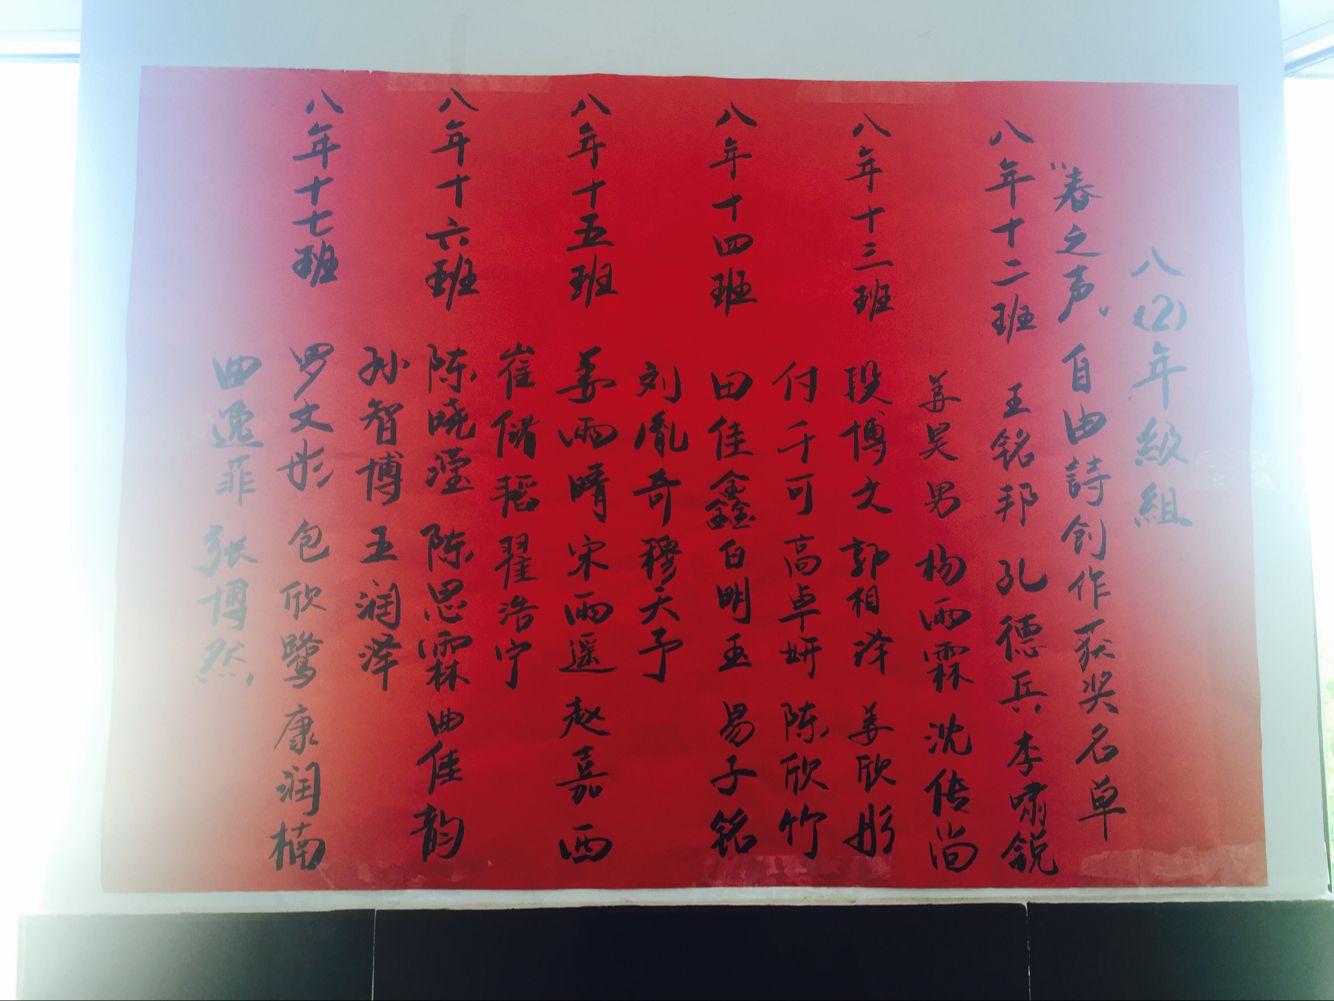 八(2)年级組
"春之声"自由詩创作获奖名单
八年十二班 王铭邦 孔德兵 李啸锐
姜昊男 杨雨霖 沈传洵
八年十三班 段博文 郭相泽 姜欣彤
付千可 高卓妍 陈欣竹
八年十四班 田佳鑫 白明玉 易子铭
刘胤奇 穆天予
八年十五班 姜雨晴 宋雨遥 赵嘉西
崔储韬 翟浩宁
八年十六班 陈晓滢 陈思霖 曲佳韵
孙智博 王润泽
八年十七班 罗文彤 包欣鹭 康润楠
曲逸菲 张博然